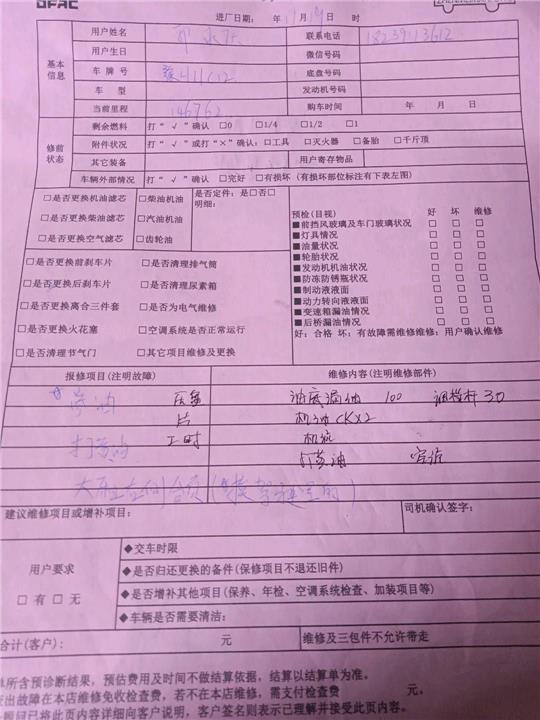 DFAC
进厂日期： 年 11月19日 时
基本信息
用户姓名 联系电话
用户生日 微信号码
车牌号 底盘号码
车型 发动机号码
当前里程 146762 购车时间 年 月 日
修前状态
剩余燃料 打“√”确认 □0 □1/4 □1/2 □1
附件状况 打“√”或打“×”确认：□工具 □灭火器 □备胎 □千斤顶
其它装备 用户寄存物品
车辆外部情况 打“√”确认 □完好 □有损坏（有损坏部位标注有下表左图）
□是否更换机油滤芯 □柴油机油 是否定件：是□否□
□是否更换柴油滤芯 □汽油机油 明细：
□是否更换空气滤芯 □齿轮油
□是否更换前刹车片 □是否清理排气筒
□是否更换后刹车片 □是否清理尿素箱
□是否更换离合三件套 □是否为电气维修
□是否更换火花塞 □空调系统是否正常运行
□是否清理节气门 □其它项目维修及更换
预检(目视) 好 坏 维修
■前挡风玻璃及车门玻璃状况 □ □ □
■灯具情况 □ □ □
■油量状况 □ □ □
■轮胎状况 □ □ □
■发动机机油状况 □ □ □
■防冻防锈瓶状况 □ □ □
■制动液液面 □ □ □
■动力转向液液面 □ □ □
■变速箱漏油情况 □ □ □
■后桥漏油情况 □ □ □
好：合格 坏：有故障需维修维修：用户确认维修
报修项目(注明故障) 维修内容(注明维修部件)
油底漏油 100 30
片 机油CKX2
打黄油 工时 机滤
打黄油
建议维修项目或增补项目： 司机确认签字：
用户要求
□有 □无
◆交车时限
◆是否归还更换的备件(保修项目不退还旧件)
◆是否增补其他项目(保养、年检、空调系统检查、加装项目等)
◆车辆是否需要清洁：
合计(客户)： 元 维修及三包件不允许带走
单所含预诊断结果，预估费用及时间不做结算依据，结算以结算单为准。
出故障在本店维修免收检查费，若不在本店维修，需支付检查费 元。
项目已将此页内容详细向客户说明，客户签名则表示已理解并接受此页内容。